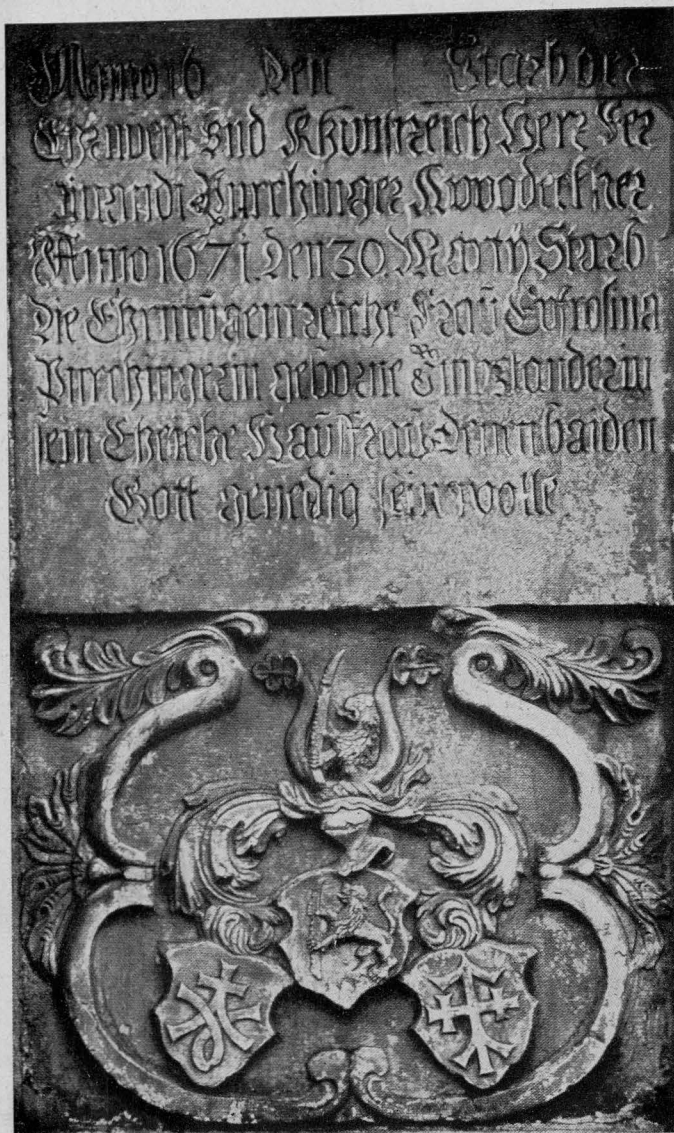 Anno 16 Den Starb der
Ehrnvest und Khunstreich Herr Fer
dinandt Purchinger
Anno 1671. Den 30. Marty Starb
die Ehrntugentreiche Frau Eufrosina
Purchingerin geborne
sein Eheliche Hausfrau. Denen baiden
Gott genedig sein wolle.